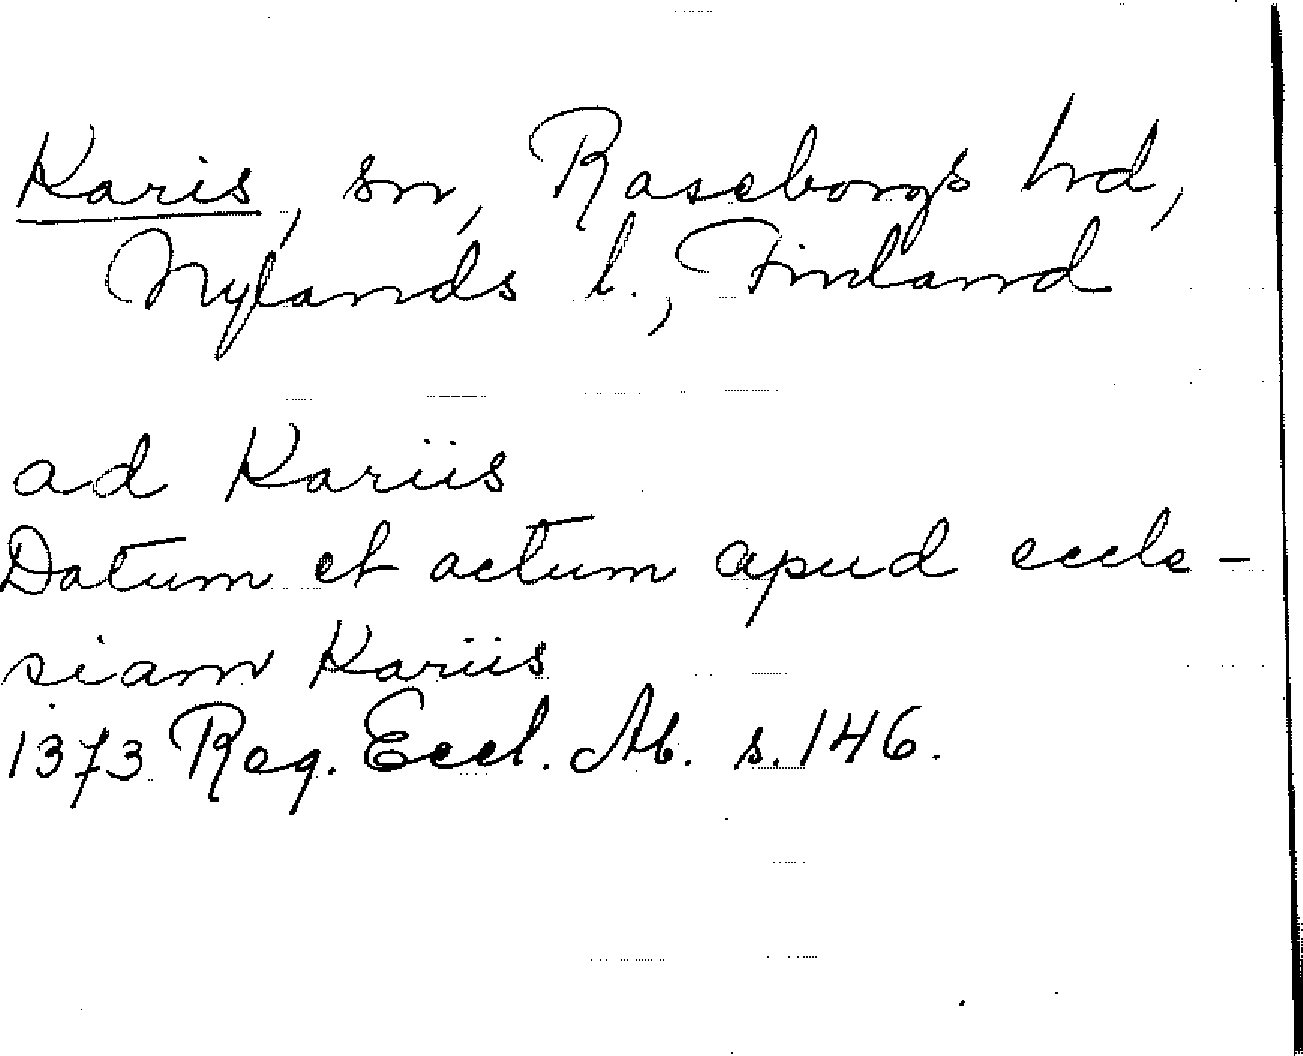 Karis, sn, Raseborgs hd,
Nylands l., Finland
ad Kariis
Datum et actum apud eccle-
siam Kariis
1373 Reg. Eccl. Ab. s. 146.